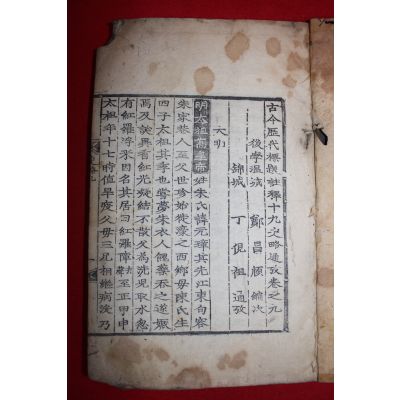 古今歷代標題註釋十九史略通攷卷之九
後學溫城 鄭昌順 編次
錦城 丁侃祖 通攷
大明
明太祖高皇帝姓朱氏諱元璋其先江東句容
朱家巷人至父世珍始徙濠之西鄉母陳氏生
四子太祖其季也嘗夢朱衣人餽藥吞之遂娠
焉及誕異香紅光凝結不散父爲洗兒取水忽
有紅羅浮來因名其居曰紅羅障 至正甲申
太祖年十七時值旱疫父母三兄相繼病沒乃